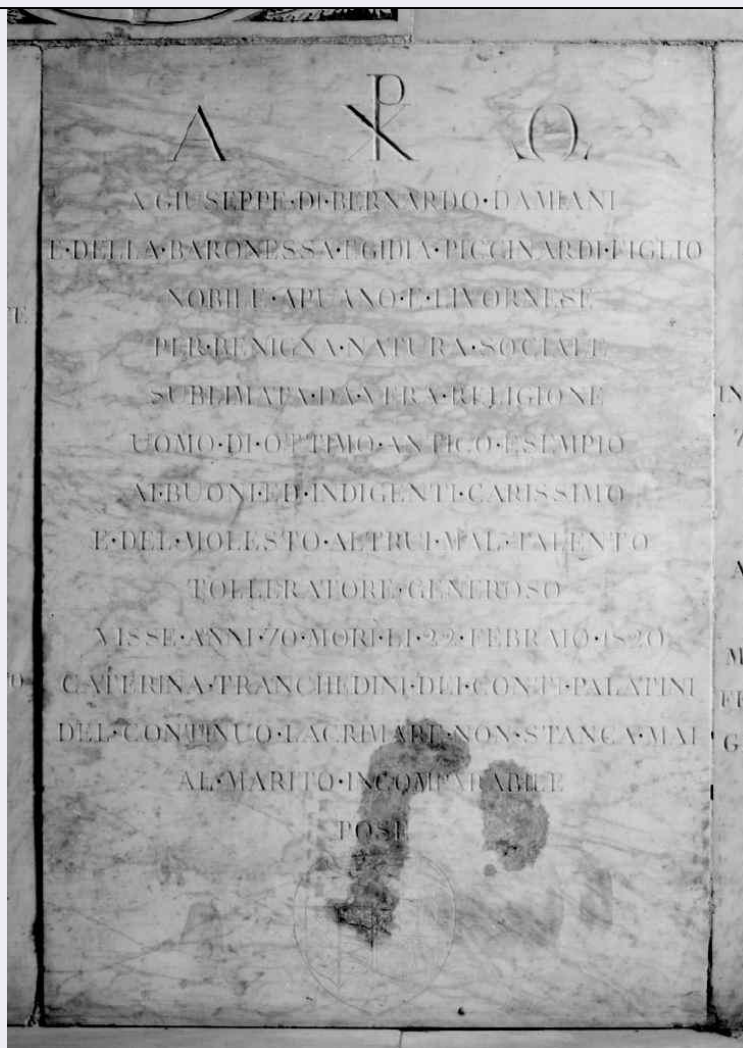 Α ☧ Ω
A GIUSEPPE·DI·BERNARDO·DAMIANI
E·DELLA·BARONESSA·EGIDIA·PICCINARDI·FIGLIO
NOBILE·APUANO·E·LIVORNESE
PER·BENIGNA·NATURA·SOCIALE
SUBLIMATA·DA·VERA·RELIGIONE
UOMO·DI·OTTIMO·ANTICO·ESEMPIO
AI·BUONI·ED·INDIGENTI·CARISSIMO
E·DEL·MOLESTO·ALTRUI·MAL·TALENTO
TOLLERATORE·GENEROSO
VISSE·ANNI·70·MORI·LI·22·FEBRAIO·1820
CATERINA·TRANCHEDINI·DEI·CONTI·PALATINI
DEL·CONTINUO·LACRIMARE·NON·STANCA·MAI
AL·MARITO·INCOMPARABILE
POSE